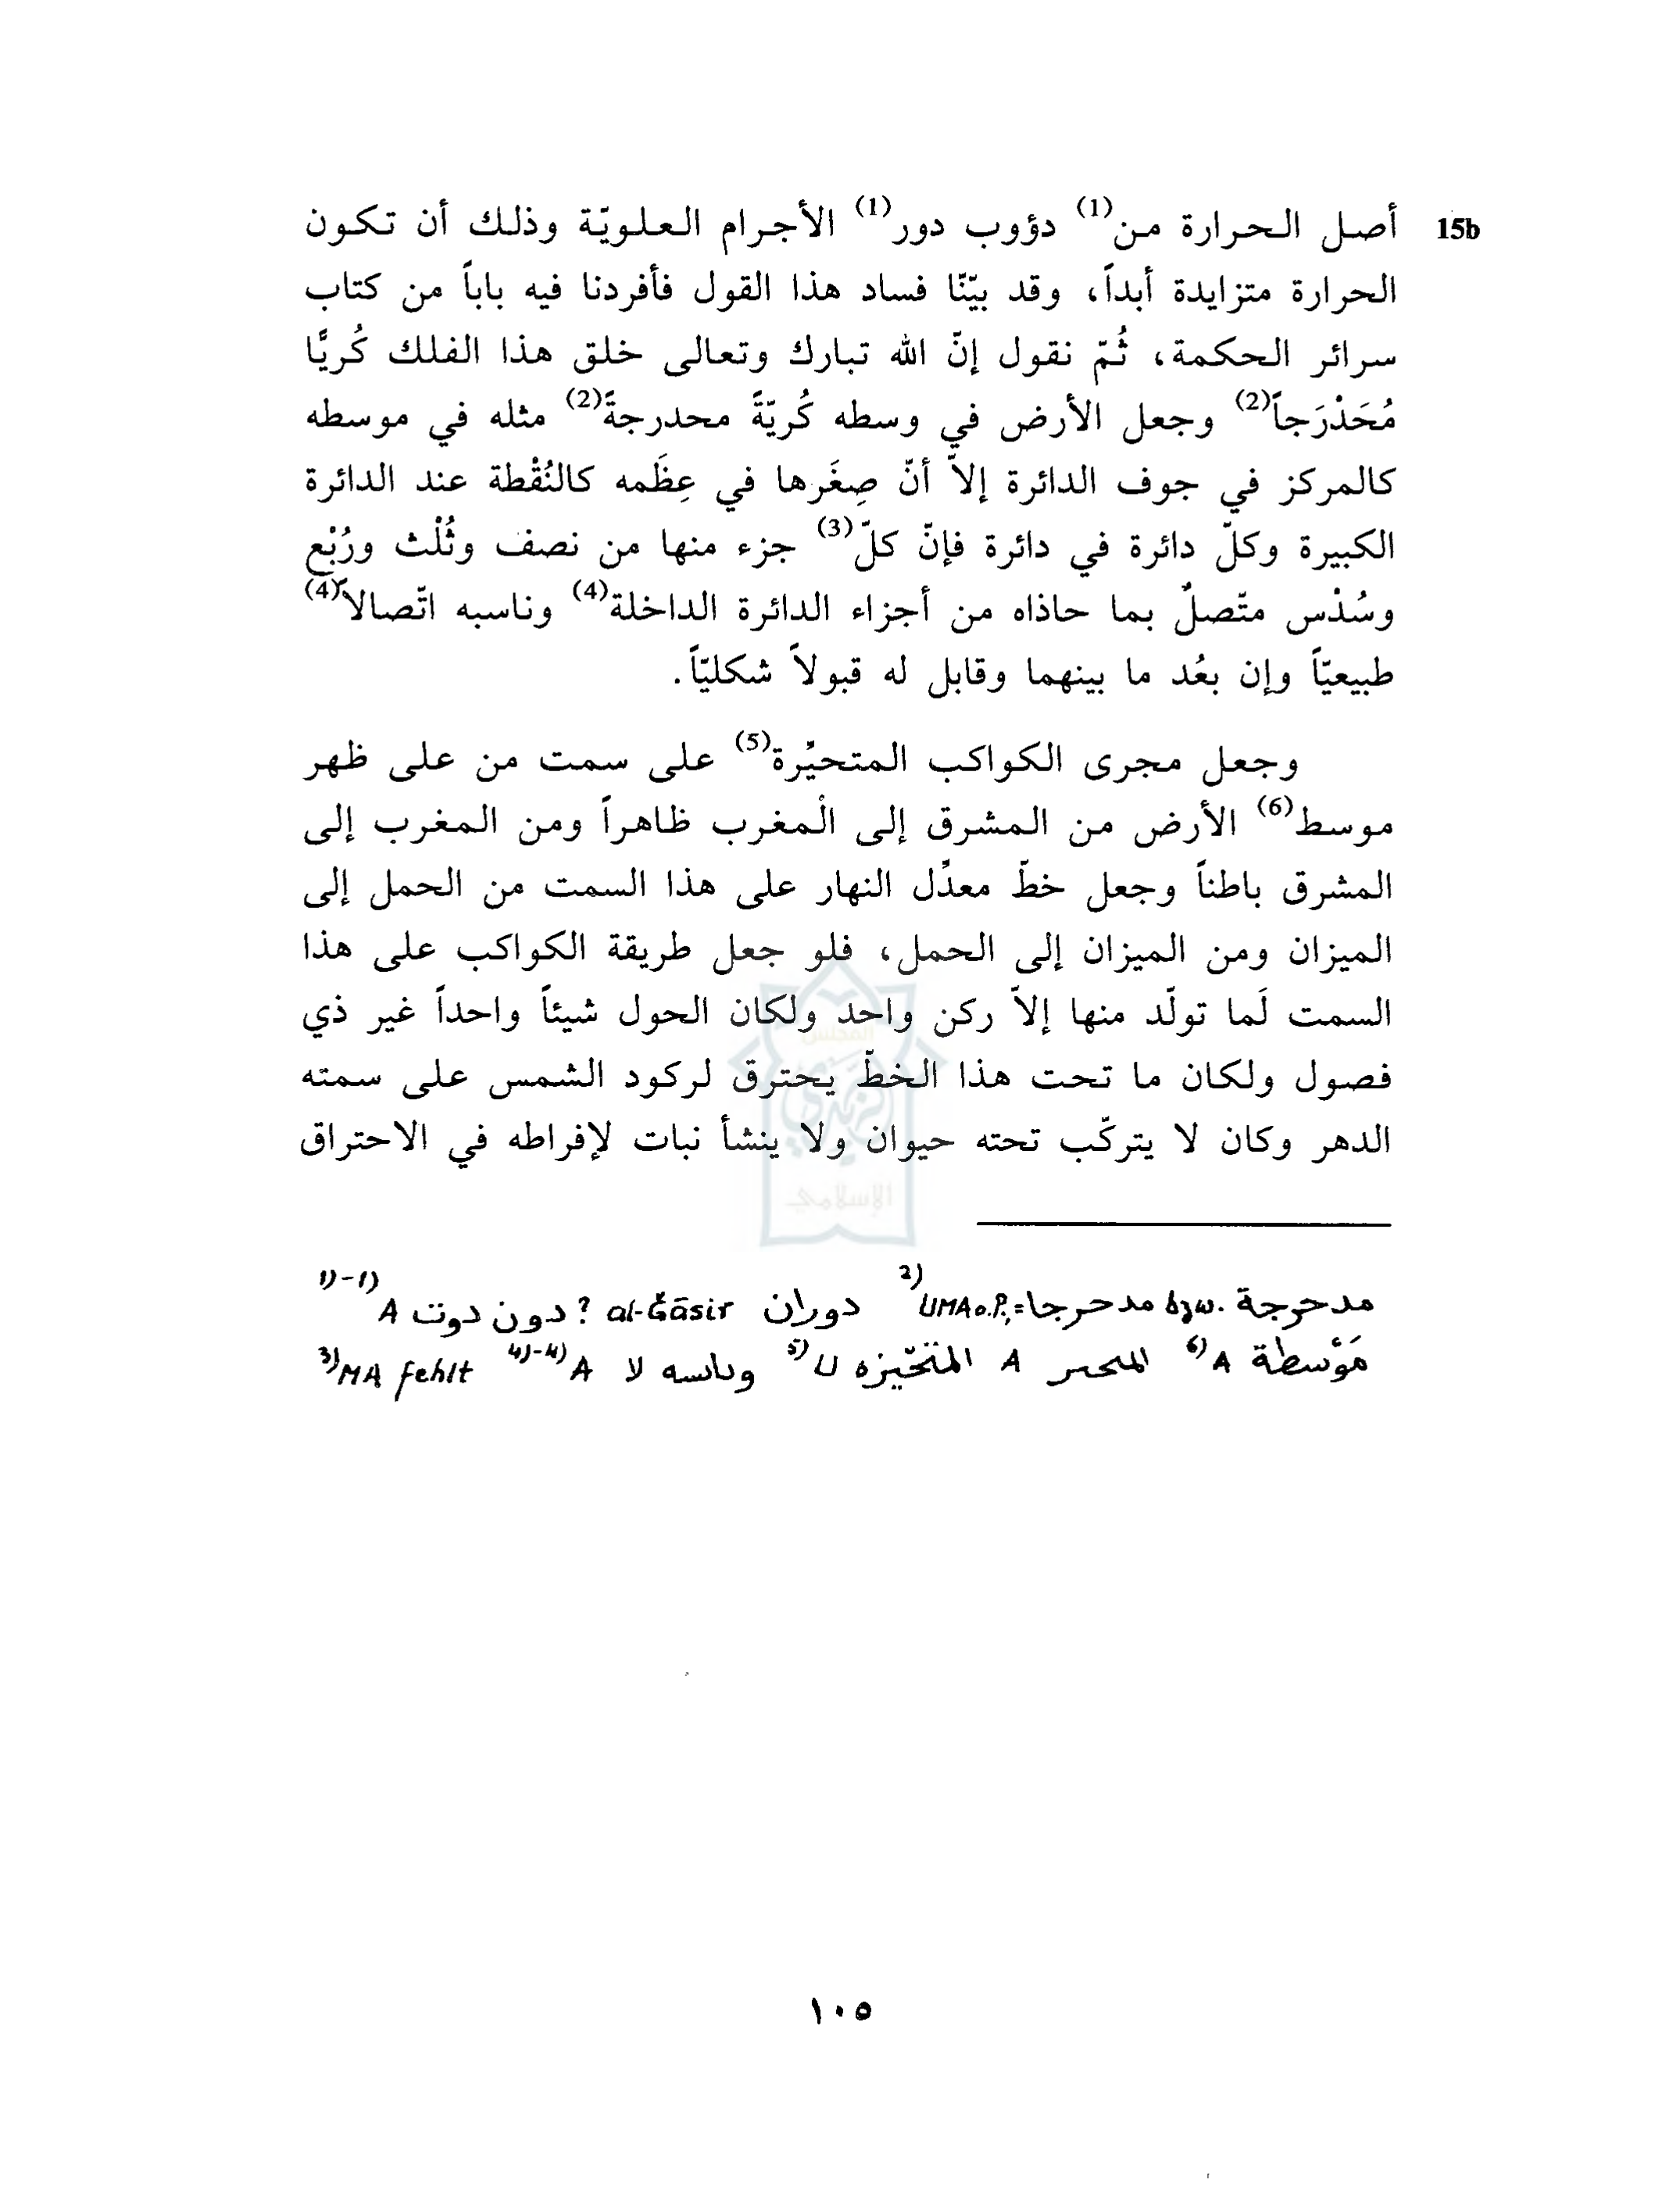 15b أصل الحرارة من(1) دؤوب دور(1) الأجرام العلويّة وذلك أن تكون
الحرارة متزايدة أبداً، وقد بيّنّا فساد هذا القول فأفردنا فيه باباً من كتاب
سرائر الحكمة، ثُمّ نقول إنّ الله تبارك وتعالى خلق هذا الفلك كُريًّا
مُحَدْرَجاً(2) وجعل الأرض في وسطه كُريّةً محدرجةً(2) مثله في موسطه
كالمركز في جوف الدائرة إلاّ أنّ صِغَرها في عِظَمه كالنُقْطة عند الدائرة
الكبيرة وكلّ دائرة في دائرة فإنّ كلّ(3) جزء منها من نصف وثُلْث ورُبْع
وسُدْس متّصلٌ بما حاذاه من أجزاء الدائرة الداخلة(4) وناسبه اتّصالاً(4)
طبيعيّاً وإن بعُد ما بينهما وقابل له قبولاً شكليّاً.
وجعل مجرى الكواكب المتحيِّرة(5) على سمت من على ظهر
موسط(6) الأرض من المشرق إلى الْمغرب ظاهراً ومن المغرب إلى
المشرق باطناً وجعل خطّ معدِّل النهار على هذا السمت من الحمل إلى
الميزان ومن الميزان إلى الحمل، فلو جعل طريقة الكواكب على هذا
السمت لَما تولّد منها إلاّ ركن واحد ولكان الحول شيئاً واحداً غير ذي
فصول ولكان ما تحت هذا الخطّ يحترق لركود الشمس على سمته
الدهر وكان لا يتركّب تحته حيوان ولا ينشأ نبات لإفراطه في الاحتراق
1)-1) A دون دوت ? al-Ǧāsir دوران 2) UMA o.P.,= مدحرجا bzw. مدحرجة
3) MA fehlt 4)-4) A وناسه لا 5) U المتحيّزه A المحر 6) A مَؤْسطة
١٠٥
المجلس
الإسلامي